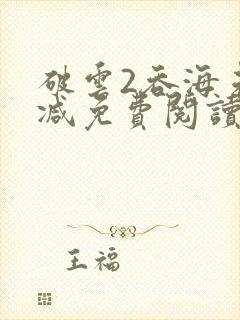 破雲2吞海
減免費閱讀
王福